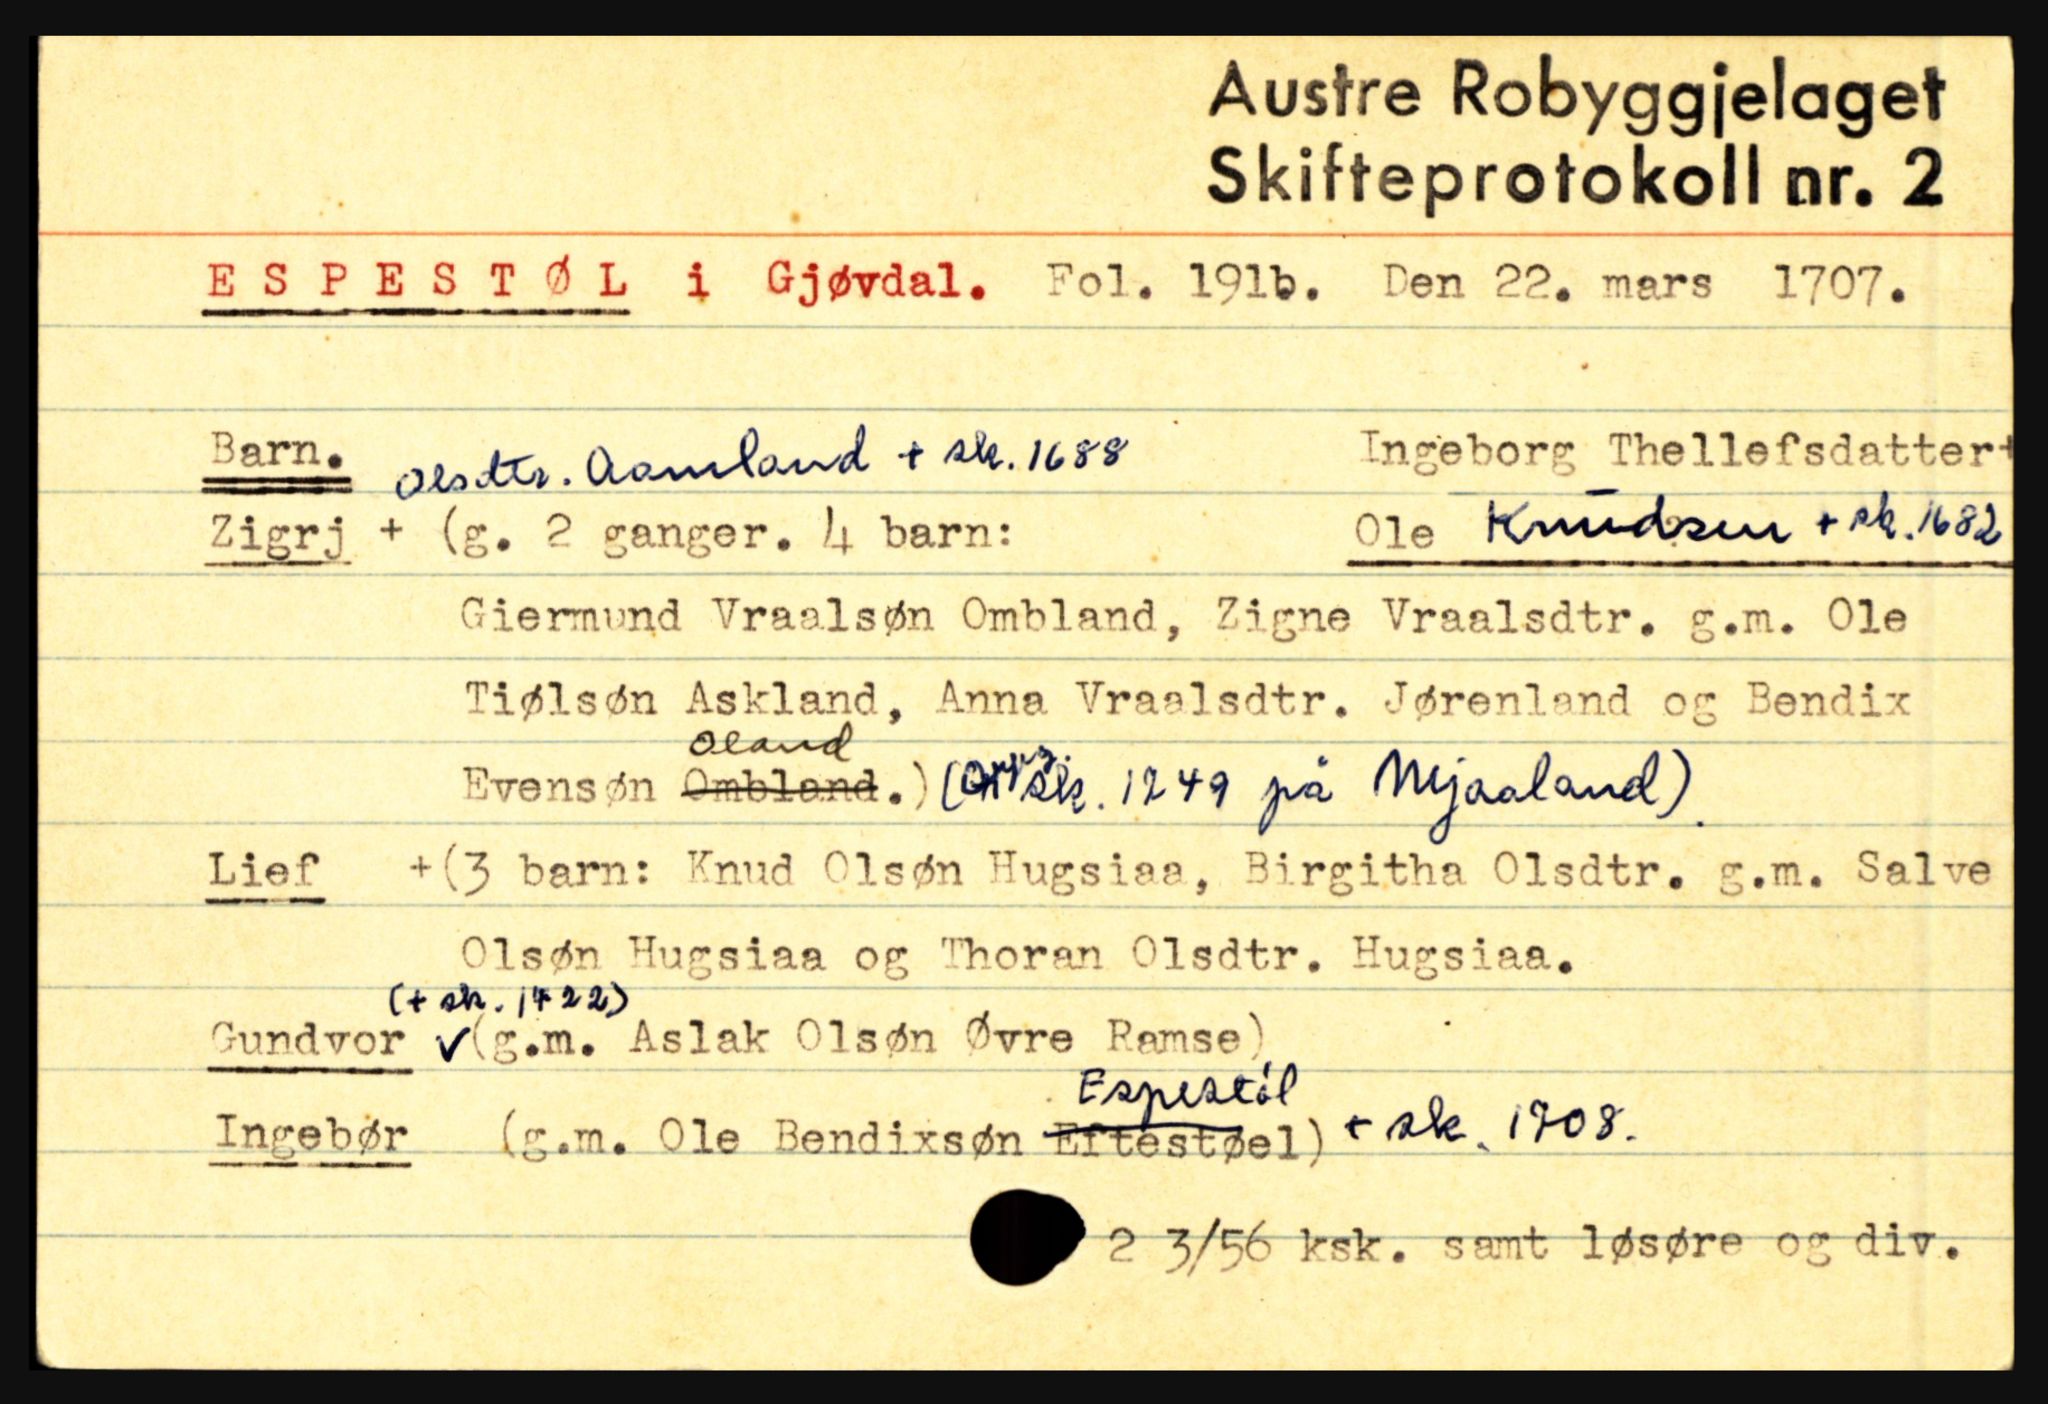 Austre Robyggjelaget
Skifteprotokoll nr. 2
ESPESTØL i Gjøvdal. Fol. 191b. Den 22. mars 1707.
Barn. Olsdtr. Aamland + sk. 1688 Ingeborg Thellefsdatter+
Zigrj + (g. 2 ganger. 4 barn: Ole Knudsen + sk. 1682
Giermund Vraalsøn Ombland, Zigne Vraalsdtr. g.m. Ole
Tiølsøn Askland, Anna Vraalsdtr. Jørenland og Bendix
Oland
Evensøn Ombland.) sk. 1749 på Mjaaland).
Lief +(3 barn: Knud Olsøn Hugsiaa, Birgitha Olsdtr. g.m. Salve
Olsøn Hugsiaa og Thoran Olsdtr. Hugsiaa.
(+ sk. 1722)
Gundvor (g.m. Aslak Olsøn Øvre Ramse)
Espestøl
Ingebør (g.m. Ole Bendixsøn Eftestøel) + sk. 1708.
2 3/56 ksk. samt løsøre og div.